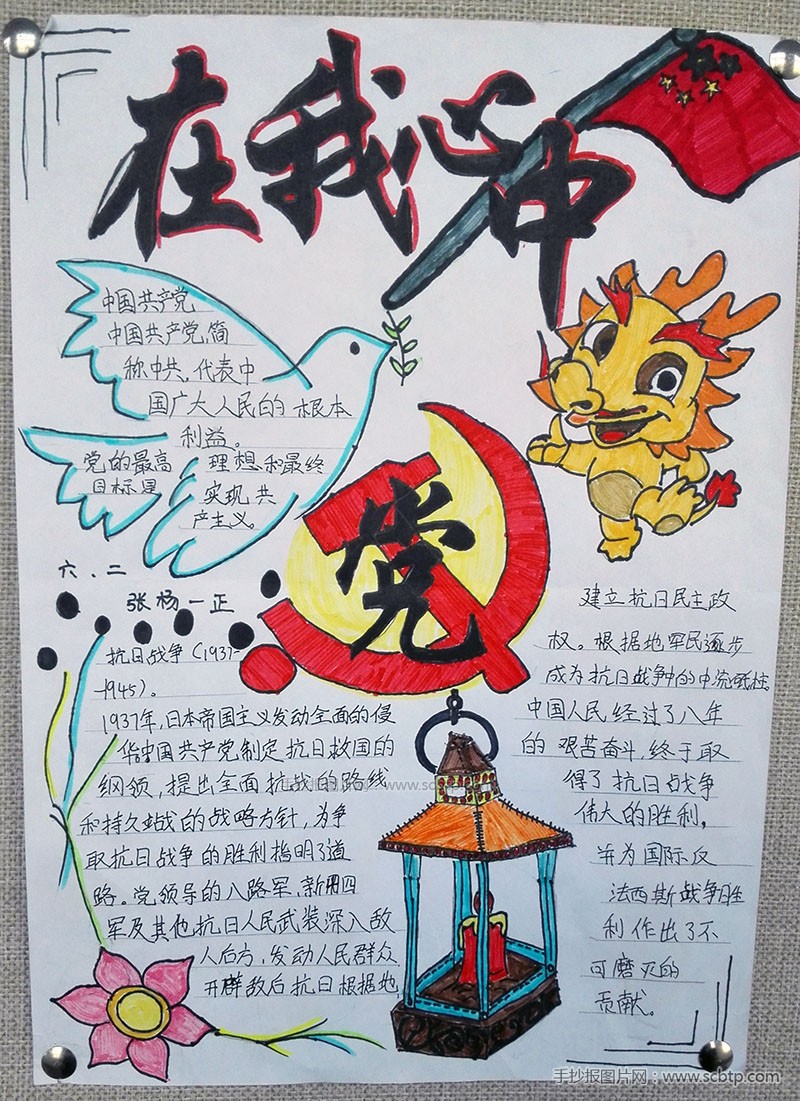 在我心中
中国共产党
中国共产党,简
称中共,代表中
国广大人民的根本
利益。
党的最高 理想和最终
目标是 实现共
产主义。
党
六、二
张杨一正
抗日战争(1937-
1945)。
1937年,日本帝国主义发动全面的侵
华中国共产党制定抗日救国的
纲领,提出全面抗战的路线
和持久战的战略方针,为争
取抗日战争的胜利指明了道
路。党领导的八路军,新四
军及其他抗日人民武装深入敌
人后方,发动人民群众
开辟敌后抗日根据地,
建立抗日民主政
权。根据地军民逐步
成为抗日战争中的中流砥柱。
中国人民经过了八年
的艰苦奋斗,终于取
得了抗日战争
伟大的胜利,
并为国际反
法西斯战争胜
利作出了不
可磨灭的
贡献。
手抄报图片网:www.scbtp.com